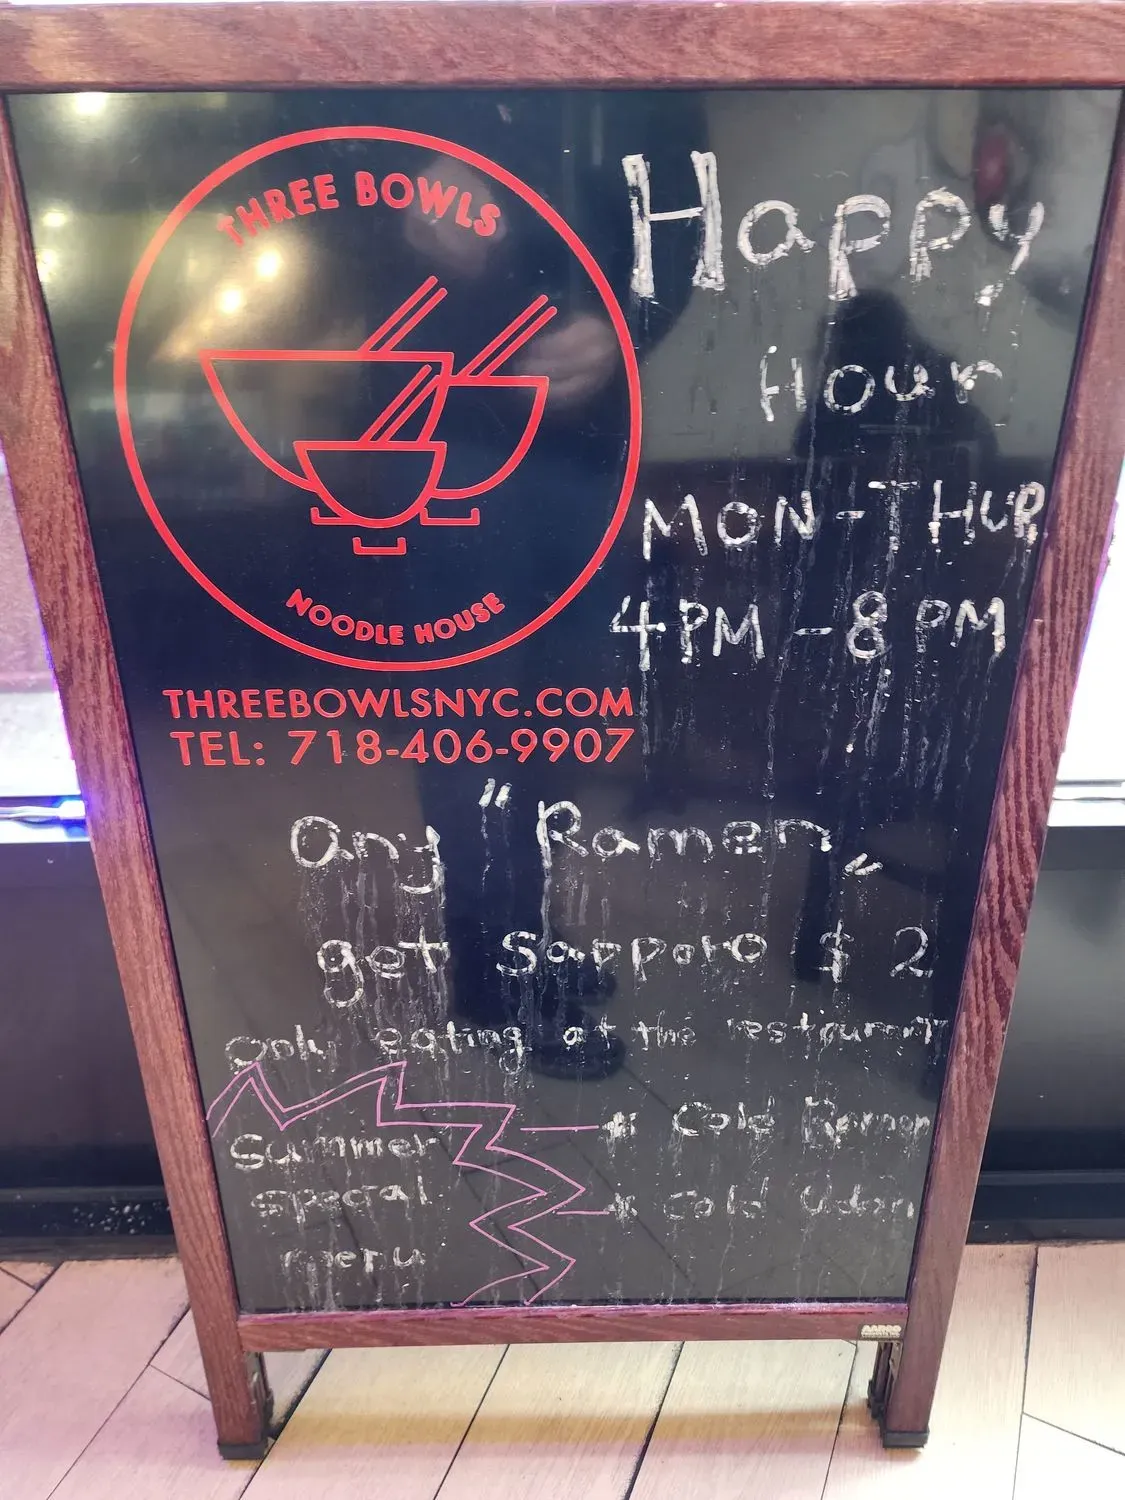 THREE BOWLS
NOODLE HOUSE
THREEBOWLSNYC.COM
TEL: 718-406-9907
Happy
Hour
MON-THUR
4PM-8PM
any "Ramen"
get Sapporo $2
only eating at the restaurant
Summer
special
menu
* Cold Ramen
* Cold Udon